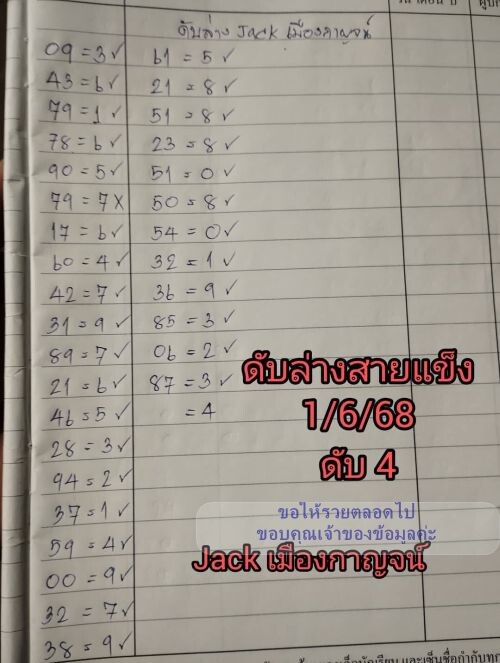 ดับล่าง Jack เมืองกาญจน์
09 = 3 ✓
43 = 6 ✓
79 = 1 ✓
78 = 6 ✓
90 = 5 ✓
79 = 7 X
17 = 6 ✓
60 = 4 ✓
42 = 7 ✓
31 = 9 ✓
89 = 7 ✓
21 = 6 ✓
46 = 5 ✓
28 = 3 ✓
94 = 2 ✓
37 = 1 ✓
59 = 4 ✓
00 = 9 ✓
32 = 7 ✓
38 = 9 ✓
61 = 5 ✓
21 = 8 ✓
51 = 8 ✓
23 = 8 ✓
51 = 0 ✓
50 = 8 ✓
54 = 0 ✓
32 = 1 ✓
36 = 9 ✓
85 = 3 ✓
06 = 2 ✓
87 = 3 ✓
= 4
ดับล่างสายแข็ง
1/6/68
ดับ 4
ขอให้รวยตลอดไป
ขอบคุณเจ้าของข้อมูลค่ะ
Jack เมืองกาญจน์